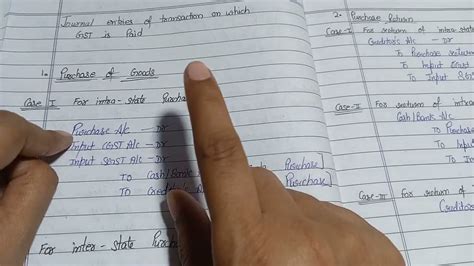 Journal entries of transaction on which
GST is Paid
1. Purchase of Goods
Case I For intra-state Purcha
Purchase A/c — Dr
Input CGST A/c — Dr
Input SGST A/c — Dr
To Cash/ Purchase]
To Credito Purchase]
For inter-state Purc
2. Purchase Return
Case-I For return of inter-stat
Creditor's A/c — Dr
To Purchase return
To Input
To Input
Case-II For return of inter
Cash/Bank A/c
To Purcha
To Input
To Input
Case-III For return of
Credito